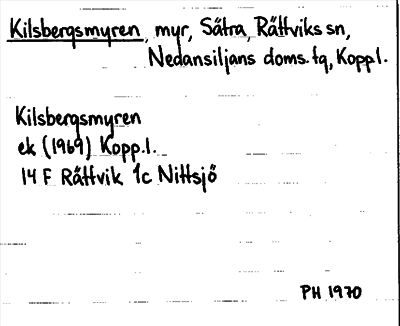 Kilsbergsmyren, myr, Sätra, Rättviks sn,
Nedansiljans doms. tg, Kopp.l.
Kilsbergsmyren
ek (1969) Kopp.l.
14 F Rättvik 1c Nittsjö
PH 1970